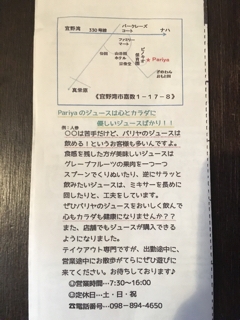 宜野湾
330号線
パークレーズコート
ナハ
ファミリーマート
Pariya
真栄原
《宜野湾市嘉数1-17-8》
Pariyaのジュースは心とカラダに
優しいジュースばかり！！
〇〇は苦手だけど、パリヤのジュースは
飲める！というお客様も多いんですよ。
食感を残した方が美味しいジュースは
グレープフルーツの果肉を一つ一つ
スプーンでくりぬいたり、逆にサラッと
飲みたいジュースは、ミキサーを長めに
回したりと、工夫をしています。
ぜひパリヤのジュースをおいしく飲んで
心もカラダも健康になりませんか？？
また、店頭でもジュースが購入できる
ようになりました。
テイクアウト専門ですが、出勤途中に、
営業途中にお散歩がてらにぜひ遊びに
来てください。お待ちしております♪
◎営業時間…7:30〜16:00
◎定休日…土・日・祝
☎電話番号…098-894-4650